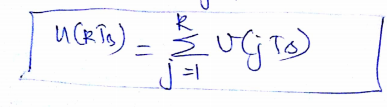 u(kTs) = \sum_{j=1}^{k} v(jTs)